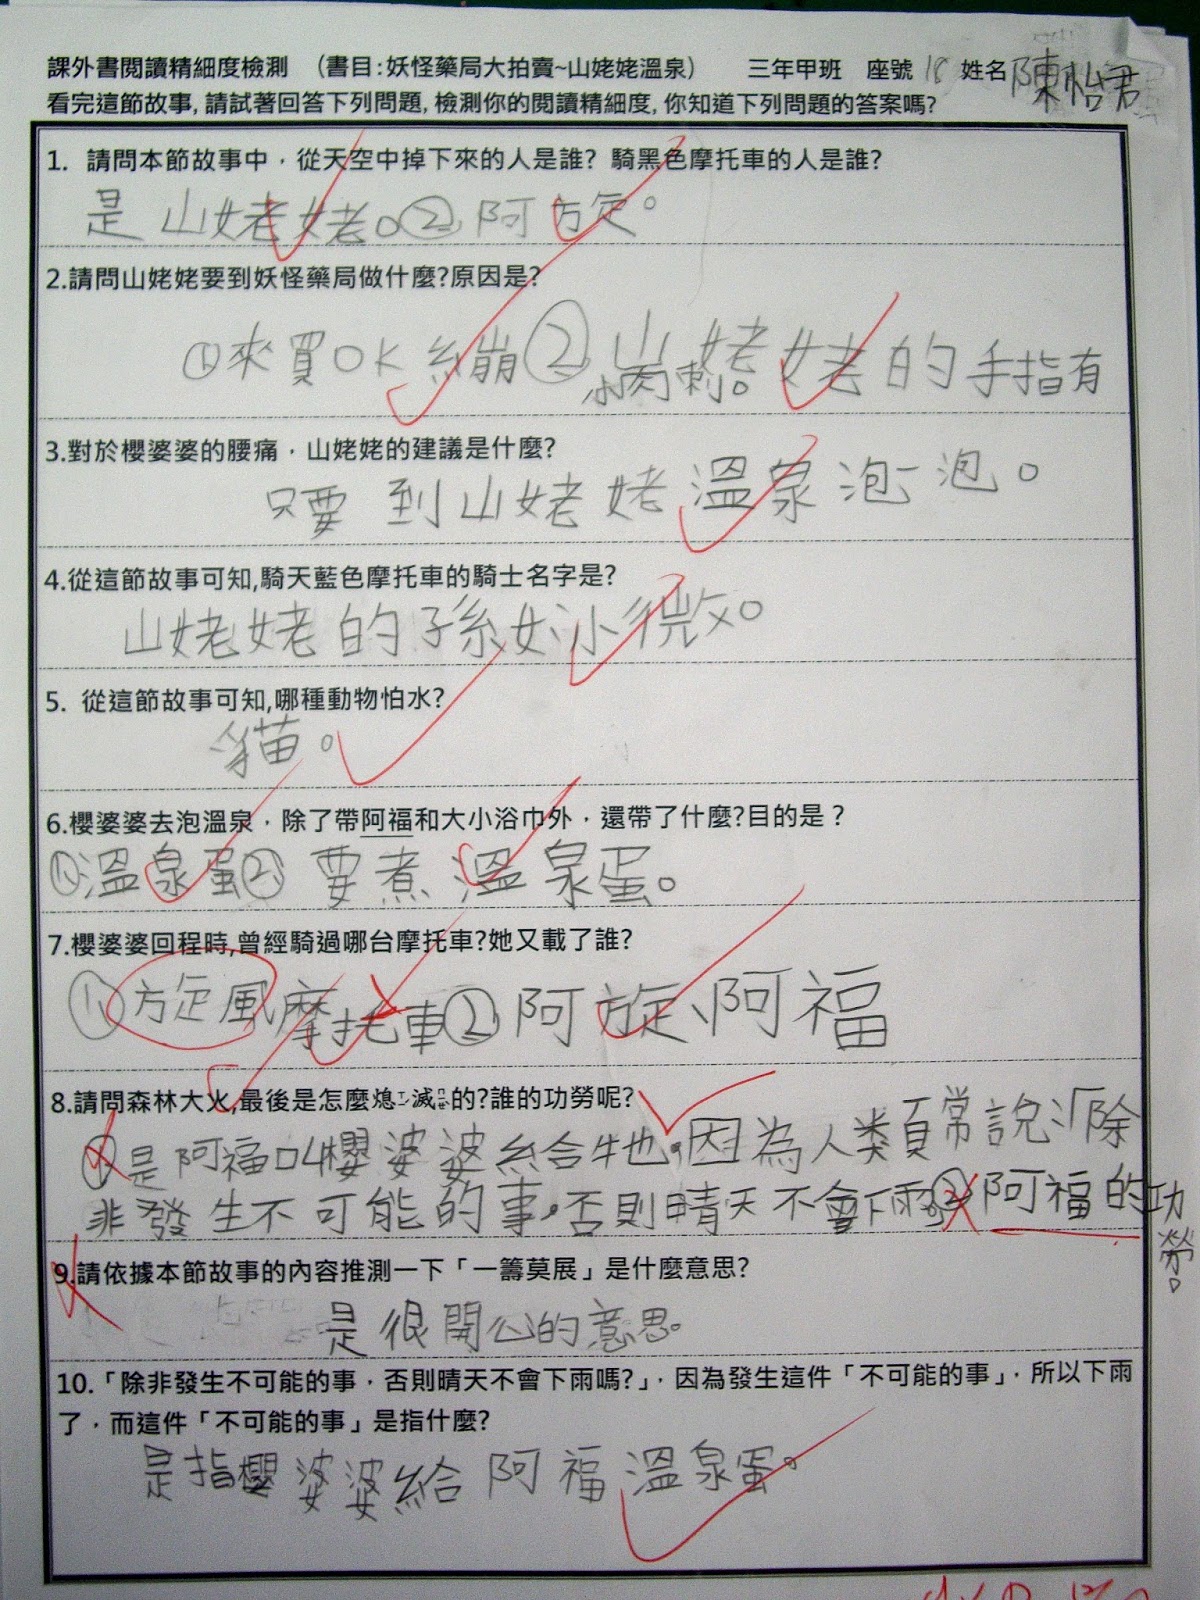 課外書閱讀精細度檢測 （書目:妖怪藥局大拍賣~山姥姥溫泉） 三年甲班 座號 18 姓名 陳怡君
看完這節故事, 請試著回答下列問題, 檢測你的閱讀精細度, 你知道下列問題的答案嗎?
1. 請問本節故事中，從天空中掉下來的人是誰? 騎黑色摩托車的人是誰?
是山姥姥。② 阿旋。
2.請問山姥姥要到妖怪藥局做什麼?原因是?
①來買OK繃② 山姥姥的手指有
小肉刺。
3.對於櫻婆婆的腰痛，山姥姥的建議是什麼?
只要到山姥姥溫泉泡一泡。
4.從這節故事可知,騎天藍色摩托車的騎士名字是?
山姥姥的孫女小微。
5. 從這節故事可知,哪種動物怕水?
貓。
6.櫻婆婆去泡溫泉，除了帶阿福和大小浴巾外，還帶了什麼?目的是？
①溫泉蛋② 要煮溫泉蛋。
7.櫻婆婆回程時,曾經騎過哪台摩托車?她又載了誰?
①旋風摩托車② 阿旋、阿福
8.請問森林大火,最後是怎麼熄滅的?誰的功勞呢?
①是阿福叫櫻婆婆給牠,因為人類常說「除
非發生不可能的事,否則晴天不會下雨② 阿福的功
勞。
9.請依據本節故事的內容推測一下「一籌莫展」是什麼意思?
是很開心的意思。
10.「除非發生不可能的事，否則晴天不會下雨嗎?」，因為發生這件「不可能的事」，所以下雨
了，而這件「不可能的事」是指什麼?
是指櫻婆婆給阿福溫泉蛋。